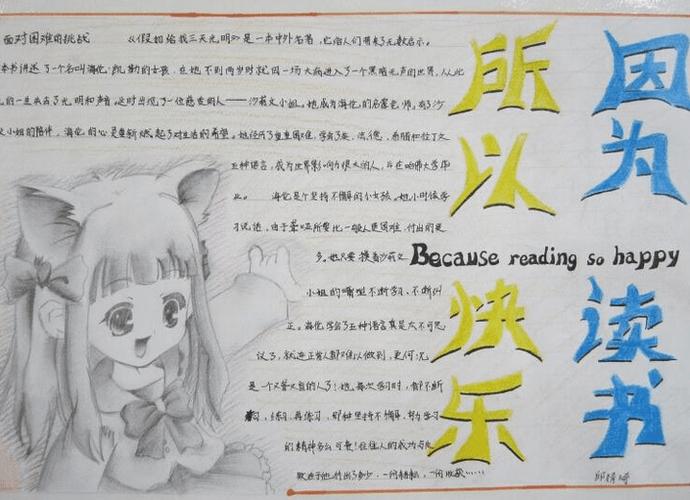 因为
读书
所以
快乐
Because reading so happy
面对困难的挑战 《假如给我三天光明》是一本中外名著，它给人们带来了无数启示。
本书讲述了一个名叫海伦·凯勒的女孩，在她不到两岁时就因一场大病进入了一个黑暗无声的世界，从此
的一生失去了光明和声音。这时出现了一位慈爱的人——沙莉文小姐。她成为海伦的启蒙老师。有了沙
文小姐的陪伴，海伦的心是重新燃起了对生活的希望。她经历了重重困难，学会了英、法、德、希腊和拉丁文
五种语言，成为世界影响力很大的人，并在哈佛大学毕
业。 海伦是个坚持不懈的小女孩。她小时候学
习说话，由于聋哑所要比一般人更困难，付出的更
多。她只要摸着沙莉文
小姐的嘴里不断学习、不断纠
正。海伦学会了五种语言真是太不可思
议了，就连正常人都难以做到，更何况
是一个又聋又盲的人了！她每次学习时，都不断
练习，再练习，那种坚持不懈、努力学习
的精神多么可贵！往往人的成功与失
败在于他付出了多少，一份耕耘，一份收获……